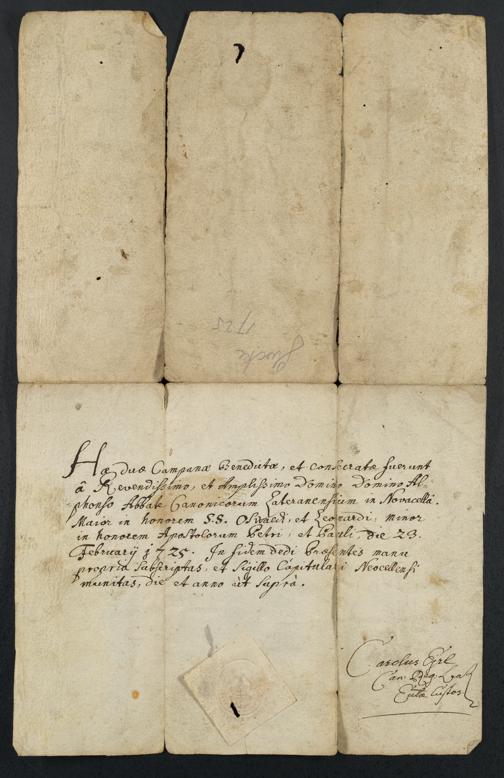 Glocke
1725
Hæ duæ Campanæ Benedictæ, et consecratæ fuerunt
â Revendissimo, et Amplissimo Domino Domino Al-
phonso Abbate Canonicorum Lateranensium in Novacella.
Maior in honorem S.S. Oswaldi, et Leonardi, minor
in honorem Apostolorum Petri, et Pauli, die 23
February 1725. In fidem dedi Præsentes manu
propria subscriptas, et Sigillo Capitulari Neocellensi
munitas, die et anno ut suprà.
Carolus
Can. Reg. Lat.
Custos